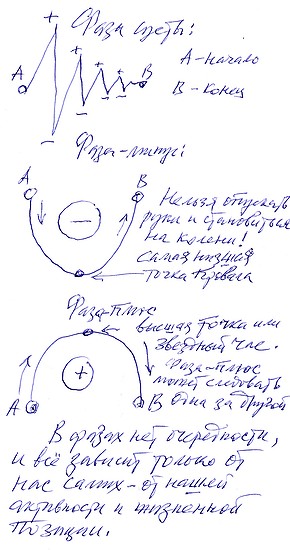 Фазы суеты:
+
А - начало
А
+
+
+
В
В - конец
-
-
-
-
Фаза-минус:
А
В
Нельзя опускать
руки и становиться
на колени!
-
Самая низшая
точка кризиса
Фаза-плюс
высшая точка или
звёздный час.
Фаза-плюс
+
может следовать
А
В
одна за другой
В фазах нет очерёдности,
и всё зависит только от
нас самих - от нашей
активности и жизненной
позиции.